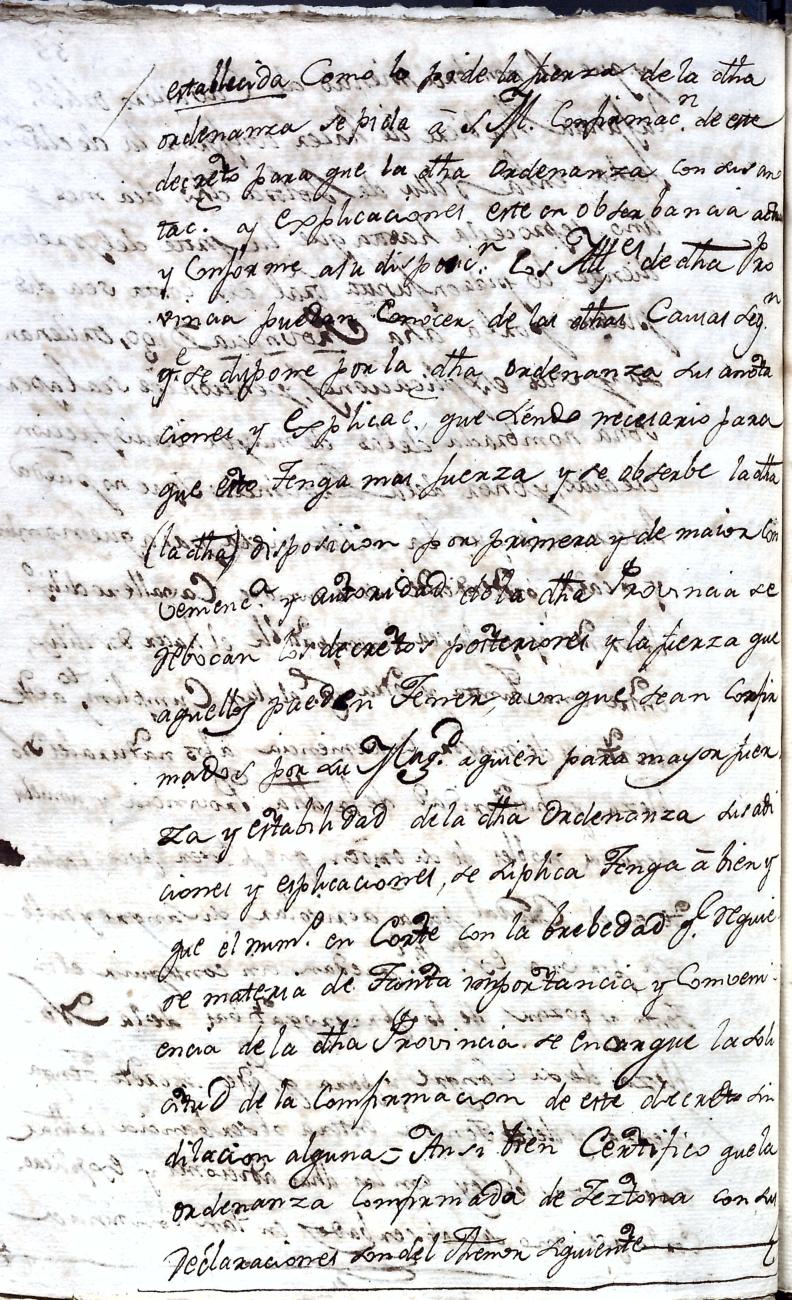 establecida Como lo pide la fuerza de la dha
ordenanza se pida â S. M. Confirmac.n de este
decreto para que la dha Ordenanza con sus ano
tac. y explicaciones este en obserbancia
y Conforme asu disposic.n los de dha Pro
vincia puedan Conocer de las dhas Causas seg.n
q.e se dispone por la dha ordenanza sus anota
ciones y explicac. que siendo necesario para
que esto Tenga mas fuerza y se obserbe la dha
(la dha) disposicion por primera y de maior Con
venienc.a y autoridad de la dha Provincia se
rebocan los decretos posteriores y la fuerza que
aquellos pueden Tener, aunque sean Confir
mados por su Mag.d aquien para mayor fuer
za y estabilidad de la dha Ordenanza sus adi
ciones y esplicaciones, se suplica Tenga â bien y
que el num.o en Corte con la brebedad q.e requie
re materia de Tanta importancia y Conveni
encia de la dha Provincia se encargue la soli
citud de la Confirmacion de este decreto sin
dilacion alguna = Ansi bien Certifico que la
ordenanza Confirmada de Teztona con sus
Declaraciones son del Themor siguiente